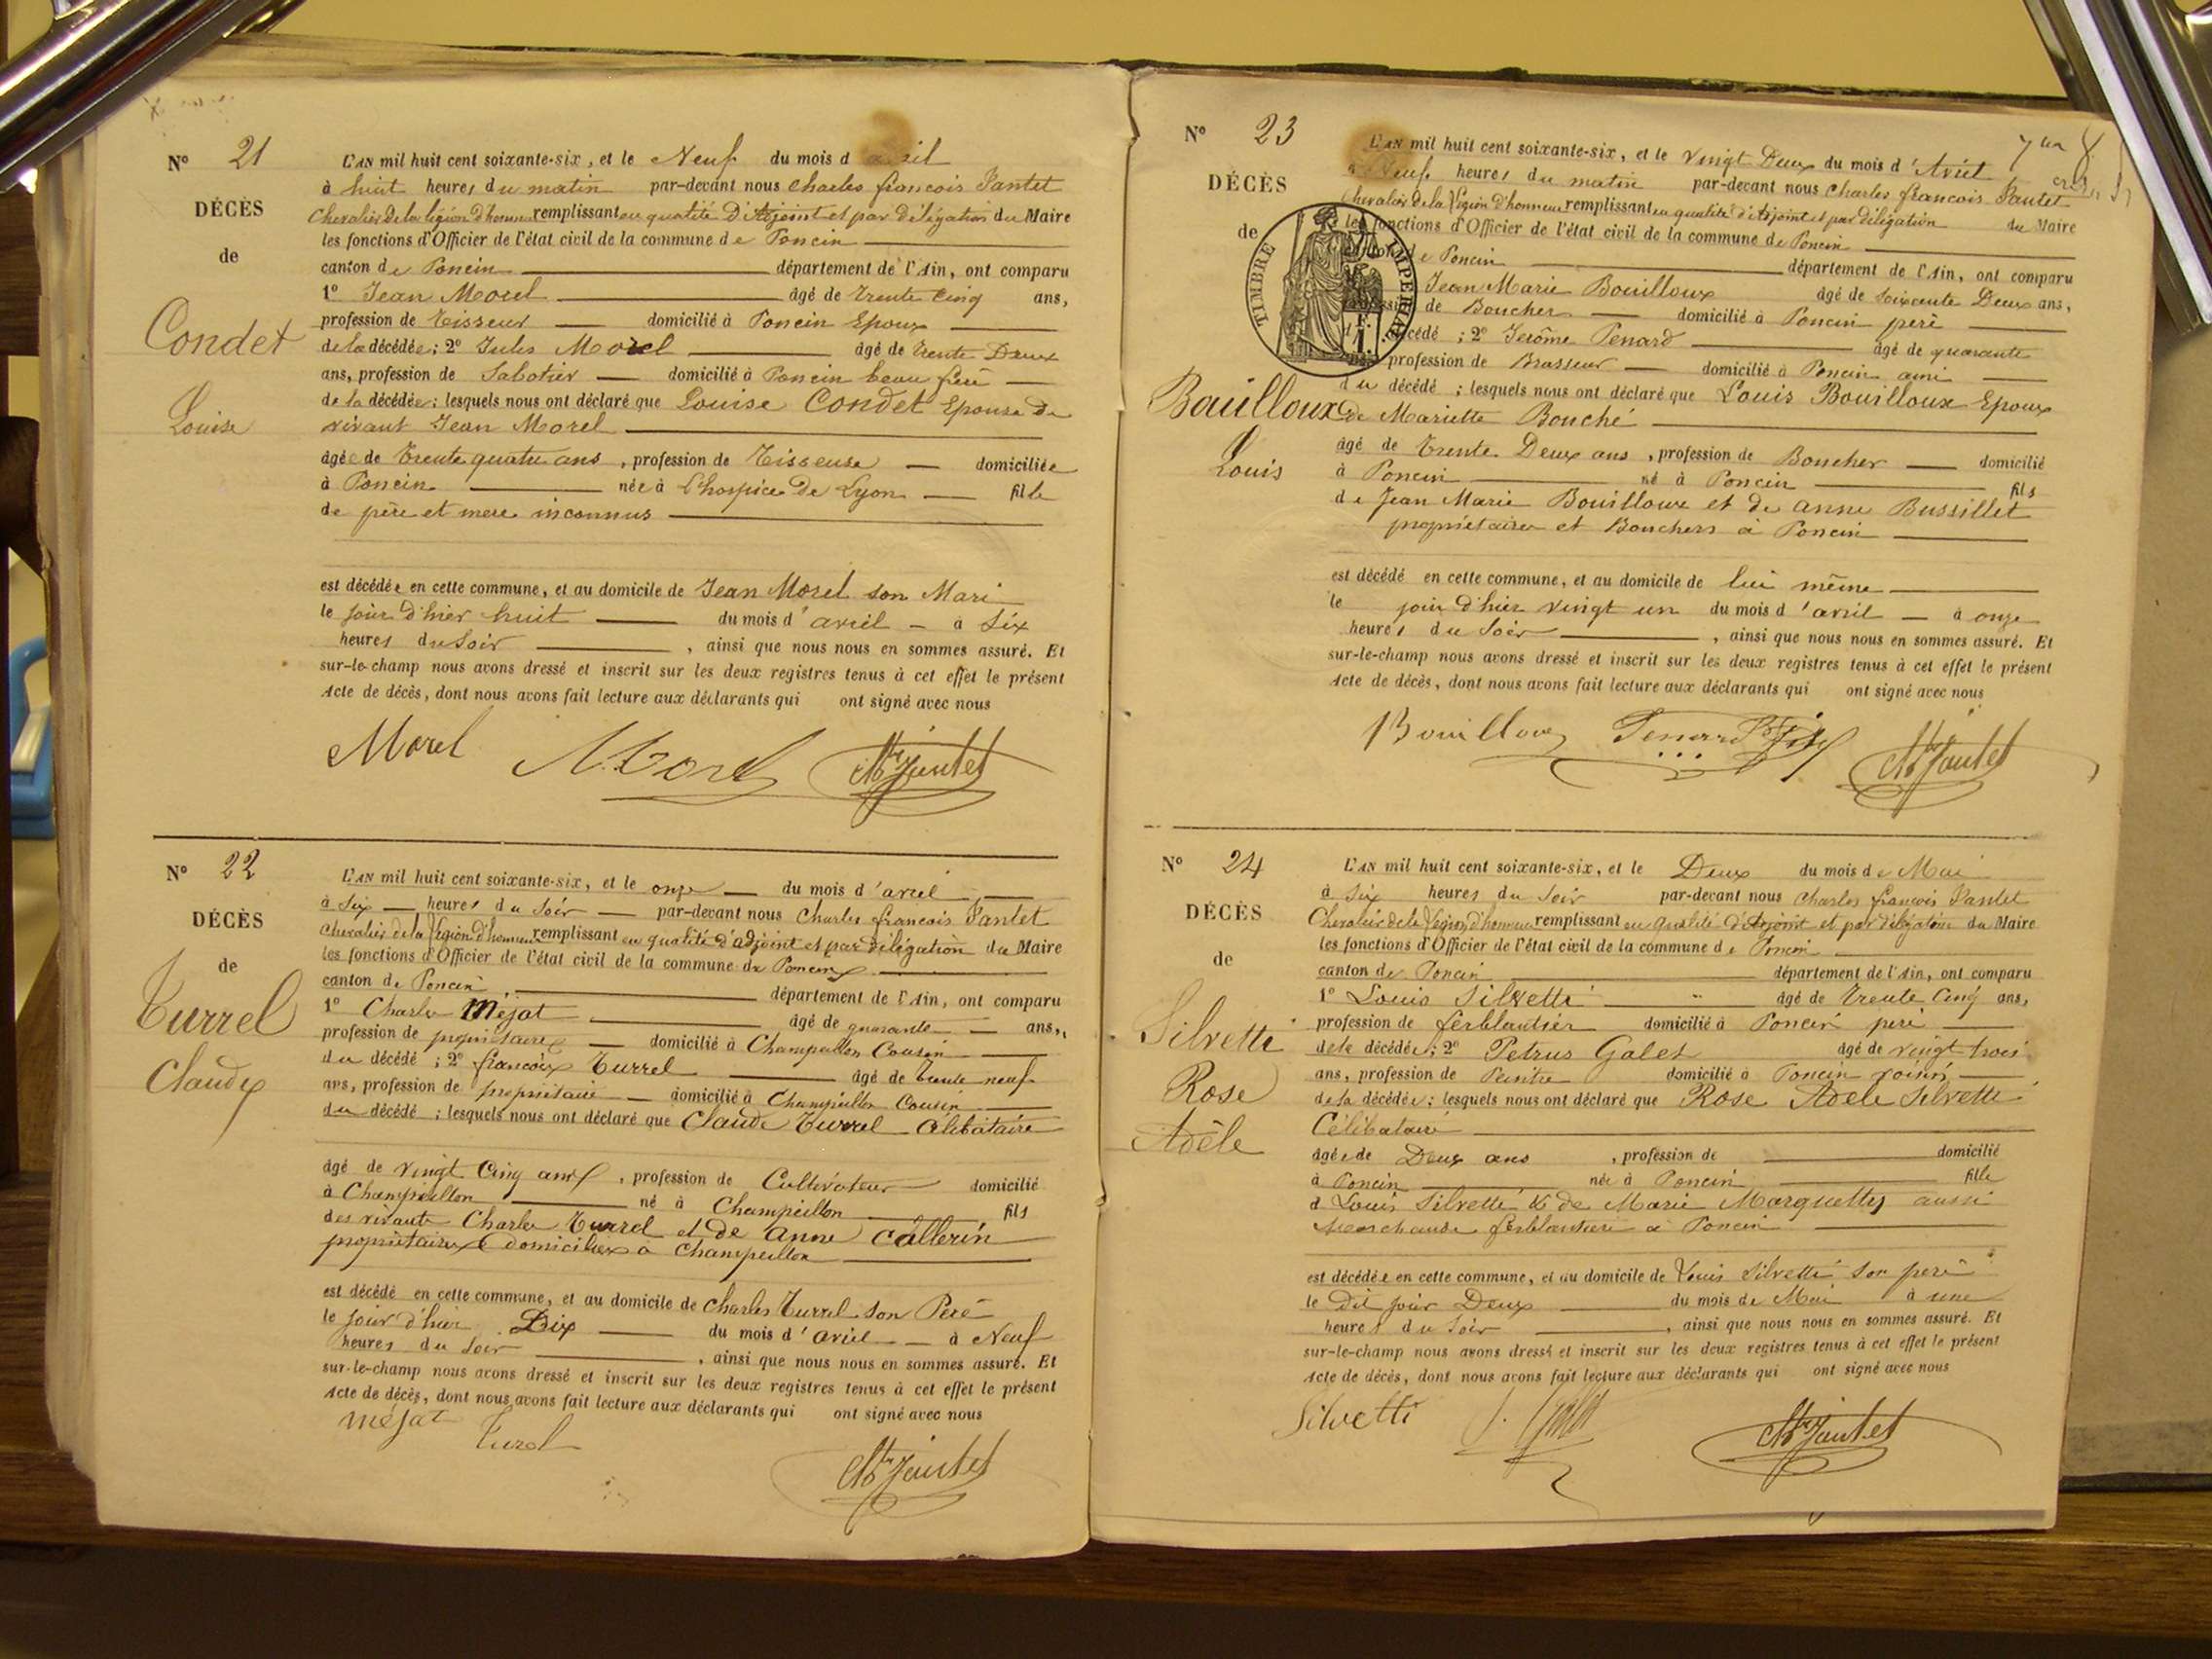 N° 21
DÉCÈS
de
Condet
Louise
L'AN mil huit cent soixante-six, et le Neuf du mois d'avril
à huit heures du matin par-devant nous Charles françois Jantet
Chevalier De la légion d'honneur remplissant en qualité D'Adjoint et par délégation du Maire
les fonctions d'Officier de l'état civil de la commune de Poncin
canton de Poncin département de l'Ain, ont comparu
1° Jean Morel âgé de trente cinq ans,
profession de tisseur domicilié à Poncin Epoux
de la décédée; 2° Jules Morel âgé de trente Deux
ans, profession de Sabotier domicilié à Poncin beau frère
de la décédée; lesquels nous ont déclaré que Louise Condet Epouse de
vivant Jean Morel
âgée de trente quatre ans, profession de Tisseuse domiciliée
à Poncin née à L'hospice De Lyon fille
de père et mère inconnus
est décédée en cette commune, et au domicile de Jean Morel son Mari
le jour d'hier huit du mois d'avril à Six
heures du Soir, ainsi que nous nous en sommes assuré. Et
sur-le-champ nous avons dressé et inscrit sur les deux registres tenus à cet effet le présent
Acte de décès, dont nous avons fait lecture aux déclarants qui ont signé avec nous
Morel Morel Jantet
N° 22
DÉCÈS
de
Turrel
Claude
L'AN mil huit cent soixante-six, et le onze du mois d'avril
à Six heures du Soir par-devant nous Charles françois Jantet
Chevalier de la Légion d'honneur remplissant en qualité d'adjoint et par délégation du Maire
les fonctions d'Officier de l'état civil de la commune de Poncin
canton de Poncin département de l'Ain, ont comparu
1° Charles Méjat âgé de quarante ans,
profession de propriétaire domicilié à Champeillon Cousin
du décédé; 2° françois Turrel âgé de trente neuf
ans, profession de propriétaire domicilié à Champeillon Cousin
du décédé; lesquels nous ont déclaré que Claude Turrel Célibataire
âgé de vingt Cinq ans, profession de Cultivateur domicilié
à Champeillon né à Champeillon fils
des vivants Charles Turrel et de Anne Callerin
propriétaires domiciliés à Champeillon
est décédé en cette commune, et au domicile de Charles Turrel son Père
le jour d'hier Dix du mois d'avril à Neuf
heures du Soir, ainsi que nous nous en sommes assuré. Et
sur-le-champ nous avons dressé et inscrit sur les deux registres tenus à cet effet le présent
Acte de décès, dont nous avons fait lecture aux déclarants qui ont signé avec nous
Méjat Turel Jantet
N° 23
DÉCÈS
de
TIMBRE IMPÉRIAL
Bouilloux
Louis
L'AN mil huit cent soixante-six, et le vingt Deux du mois d'Avril
à Neuf heures du matin par-devant nous Charles françois Jantet
Chevalier de la Légion d'honneur remplissant en qualité d'Adjoint et par délégation du Maire
les fonctions d'Officier de l'état civil de la commune de Poncin
canton de Poncin département de l'Ain, ont comparu
Jean Marie Bouilloux âgé de soixante Deux ans,
profession de Boucher domicilié à Poncin père
du décédé; 2° Jérôme Penard âgé de quarante
ans, profession de Brasseur domicilié à Poncin ami
du décédé; lesquels nous ont déclaré que Louis Bouilloux Epoux
de Mariette Bouché
âgé de trente Deux ans, profession de Boucher domicilié
à Poncin né à Poncin fils
de Jean Marie Bouilloux et de anne Bussillet
propriétaires et Bouchers à Poncin
est décédé en cette commune, et au domicile de lui même
le jour d'hier vingt un du mois d'avril à onze
heures du Soir, ainsi que nous nous en sommes assuré. Et
sur-le-champ nous avons dressé et inscrit sur les deux registres tenus à cet effet le présent
Acte de décès, dont nous avons fait lecture aux déclarants qui ont signé avec nous
Bouilloux Penard Jantet
N° 24
DÉCÈS
de
Silvetti
Rose
Adèle
L'AN mil huit cent soixante-six, et le Deux du mois de Mai
à Six heures du Soir par-devant nous Charles françois Jantet
Chevalier de la Légion d'honneur remplissant en qualité d'Adjoint et par délégation du Maire
les fonctions d'Officier de l'état civil de la commune de Poncin
canton de Poncin département de l'Ain, ont comparu
1° Louis Silvetti âgé de trente Cinq ans,
profession de ferblantier domicilié à Poncin père
de la décédée; 2° Petrus Galet âgé de vingt trois
ans, profession de Peintre domicilié à Poncin voisin
de la décédée; lesquels nous ont déclaré que Rose Adèle Silvetti
Célibataire
âgée de Deux ans, profession de domicilié
à Poncin née à Poncin fille
d Louis Silvetti & de Marie Marquetty aussi
Marchands ferblantiers à Poncin
est décédée en cette commune, et au domicile de Louis Silvetti son père
le Dit jour Deux du mois de Mai à une
heures du Soir, ainsi que nous nous en sommes assuré. Et
sur-le-champ nous avons dressé et inscrit sur les deux registres tenus à cet effet le présent
Acte de décès, dont nous avons fait lecture aux déclarants qui ont signé avec nous
Silvetti Jantet